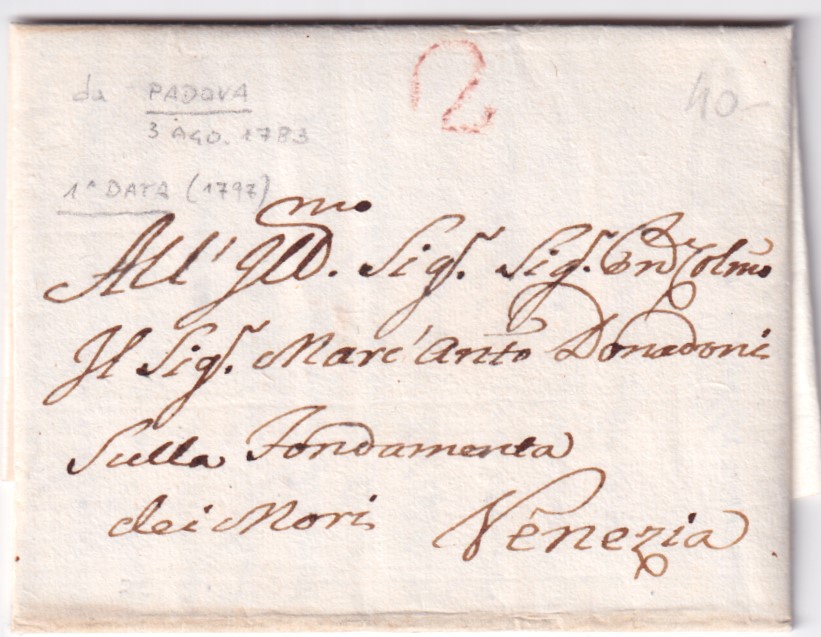 da PADOVA
3 AGO. 1783
1ª DATA (1797)
2
40-
All' Illmo. Sigr. Sigr. Pnd Colmo
Il Sigr. Marc' Anto Donadoni
Sulla Fondamenta
dei Mori Venezia